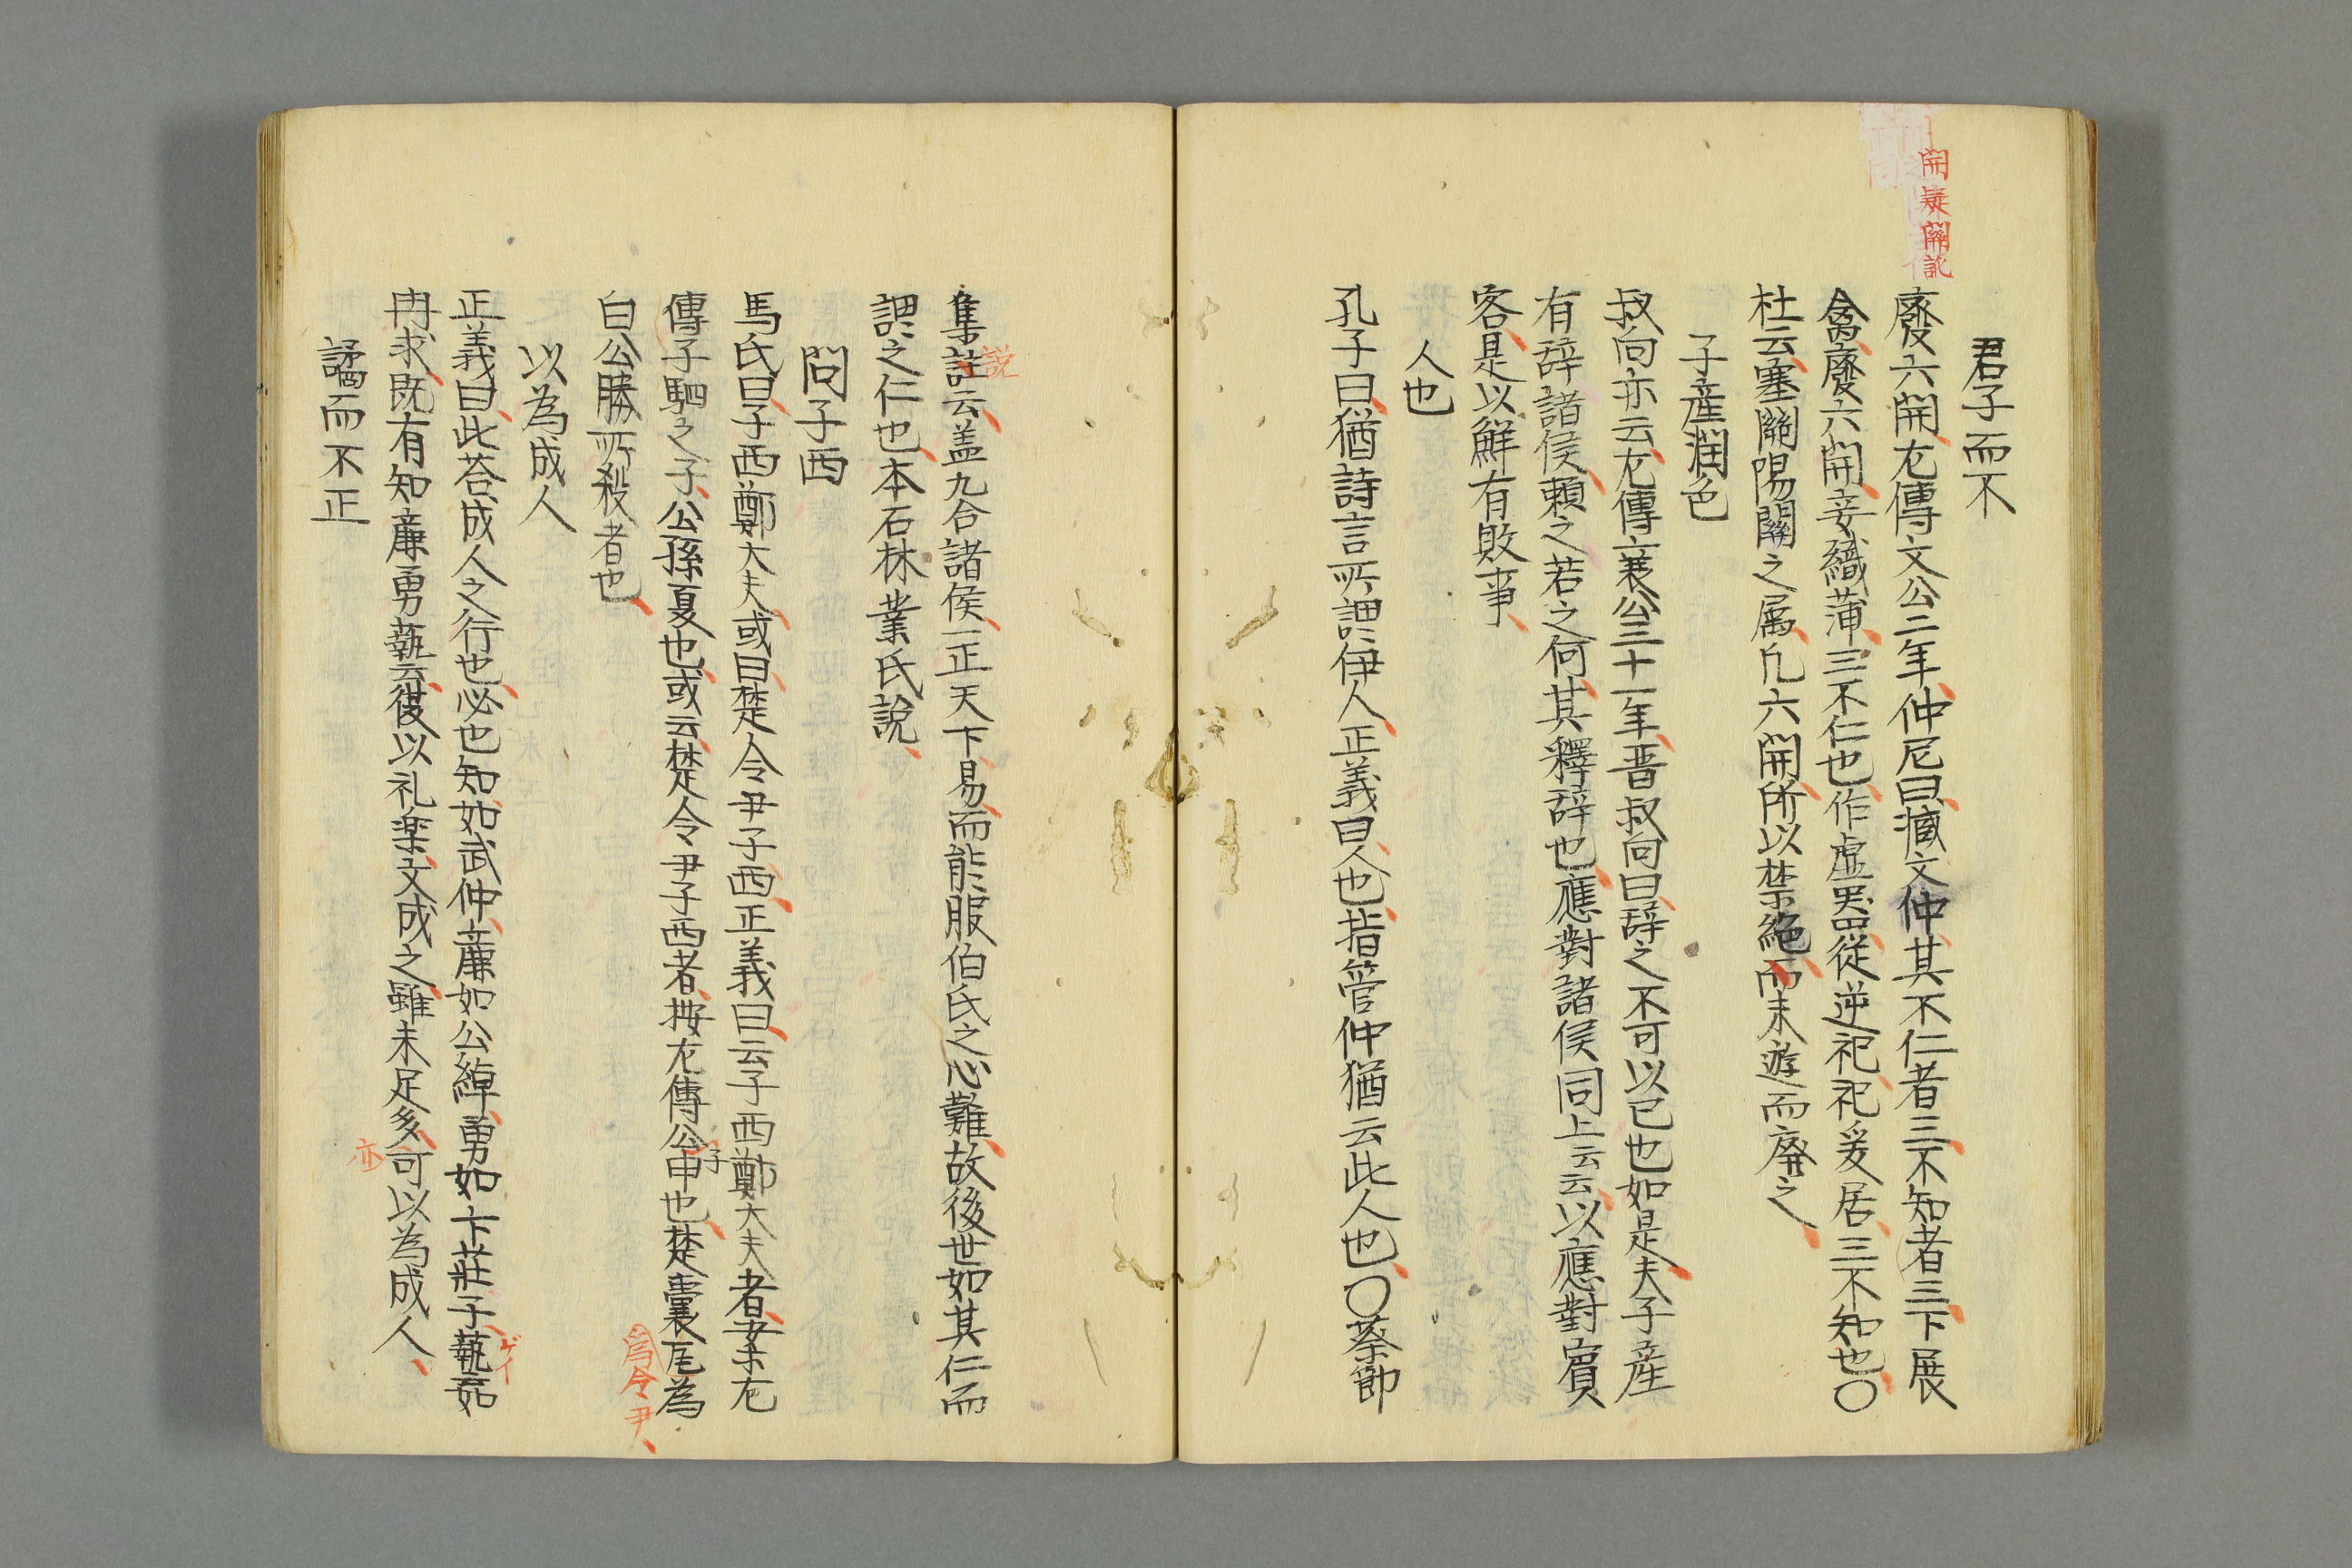 開疑關訛
君子而不
廢六開左傳文公二年仲尼曰臧文仲其不仁者三不知者三下展
禽廢六開妾織蒲三不仁也作虚器從逆祀祀爰居三不知也〇
杜云塞關陽關之属凡六開所以禁絶而末遊而廢之
子産潤色
叔向亦云左傳襄公三十一年晋叔向曰辞之不可以已也如是夫子産
有辞諸侯頼之若之何其釋辞也應對諸侯同上云云以應對賓
客是以鮮有敗事
人也
孔子曰猶詩言所謂伊人正義曰人也指管仲猶云此人也〇蔡節
集註云蓋九合諸侯一正天下易而能服伯氏之心難故後世如其仁而
説
謂之仁也本石林業氏説
問子西
馬氏曰子西鄭大夫或曰楚令尹子西正義曰云子西鄭大夫者案左
傳子駟之子公孫夏也或云楚令尹子西者按左傳公子申也楚囊瓦為
為令尹
白公勝所殺者也
以為成人
正義曰此荅成人之行也必也知如武仲廉如公綽勇如卞莊子藝如
ゲイ
冉求既有知廉勇藝云復以礼楽文成之雖未足多可以為成人
亦
譎而不正